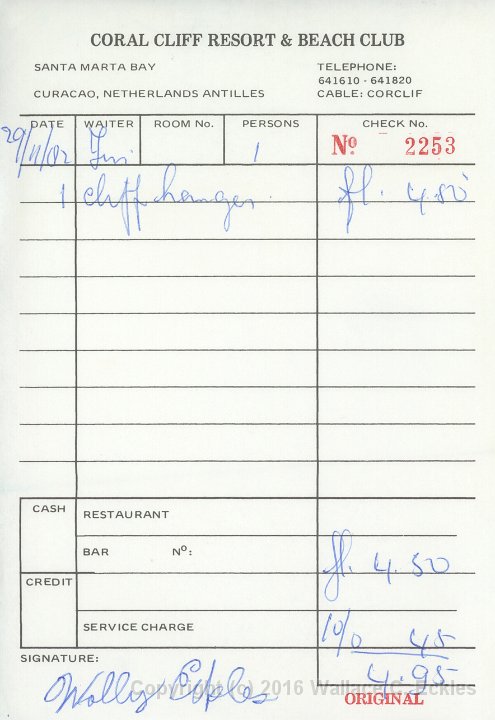 CORAL CLIFF RESORT & BEACH CLUB
SANTA MARTA BAY TELEPHONE:
641610 - 641820
CURACAO, NETHERLANDS ANTILLES CABLE: CORCLIF
DATE WAITER ROOM No. PERSONS CHECK No.
29/11/82 1 No 2253
1 cliff hanger. fl. 4.50
CASH RESTAURANT
BAR No:
fl. 4.50
CREDIT
SERVICE CHARGE 10% 45
SIGNATURE: 4.95
Wally Eckles
Copyright (c) 2016 Wallace C. Eckles
ORIGINAL